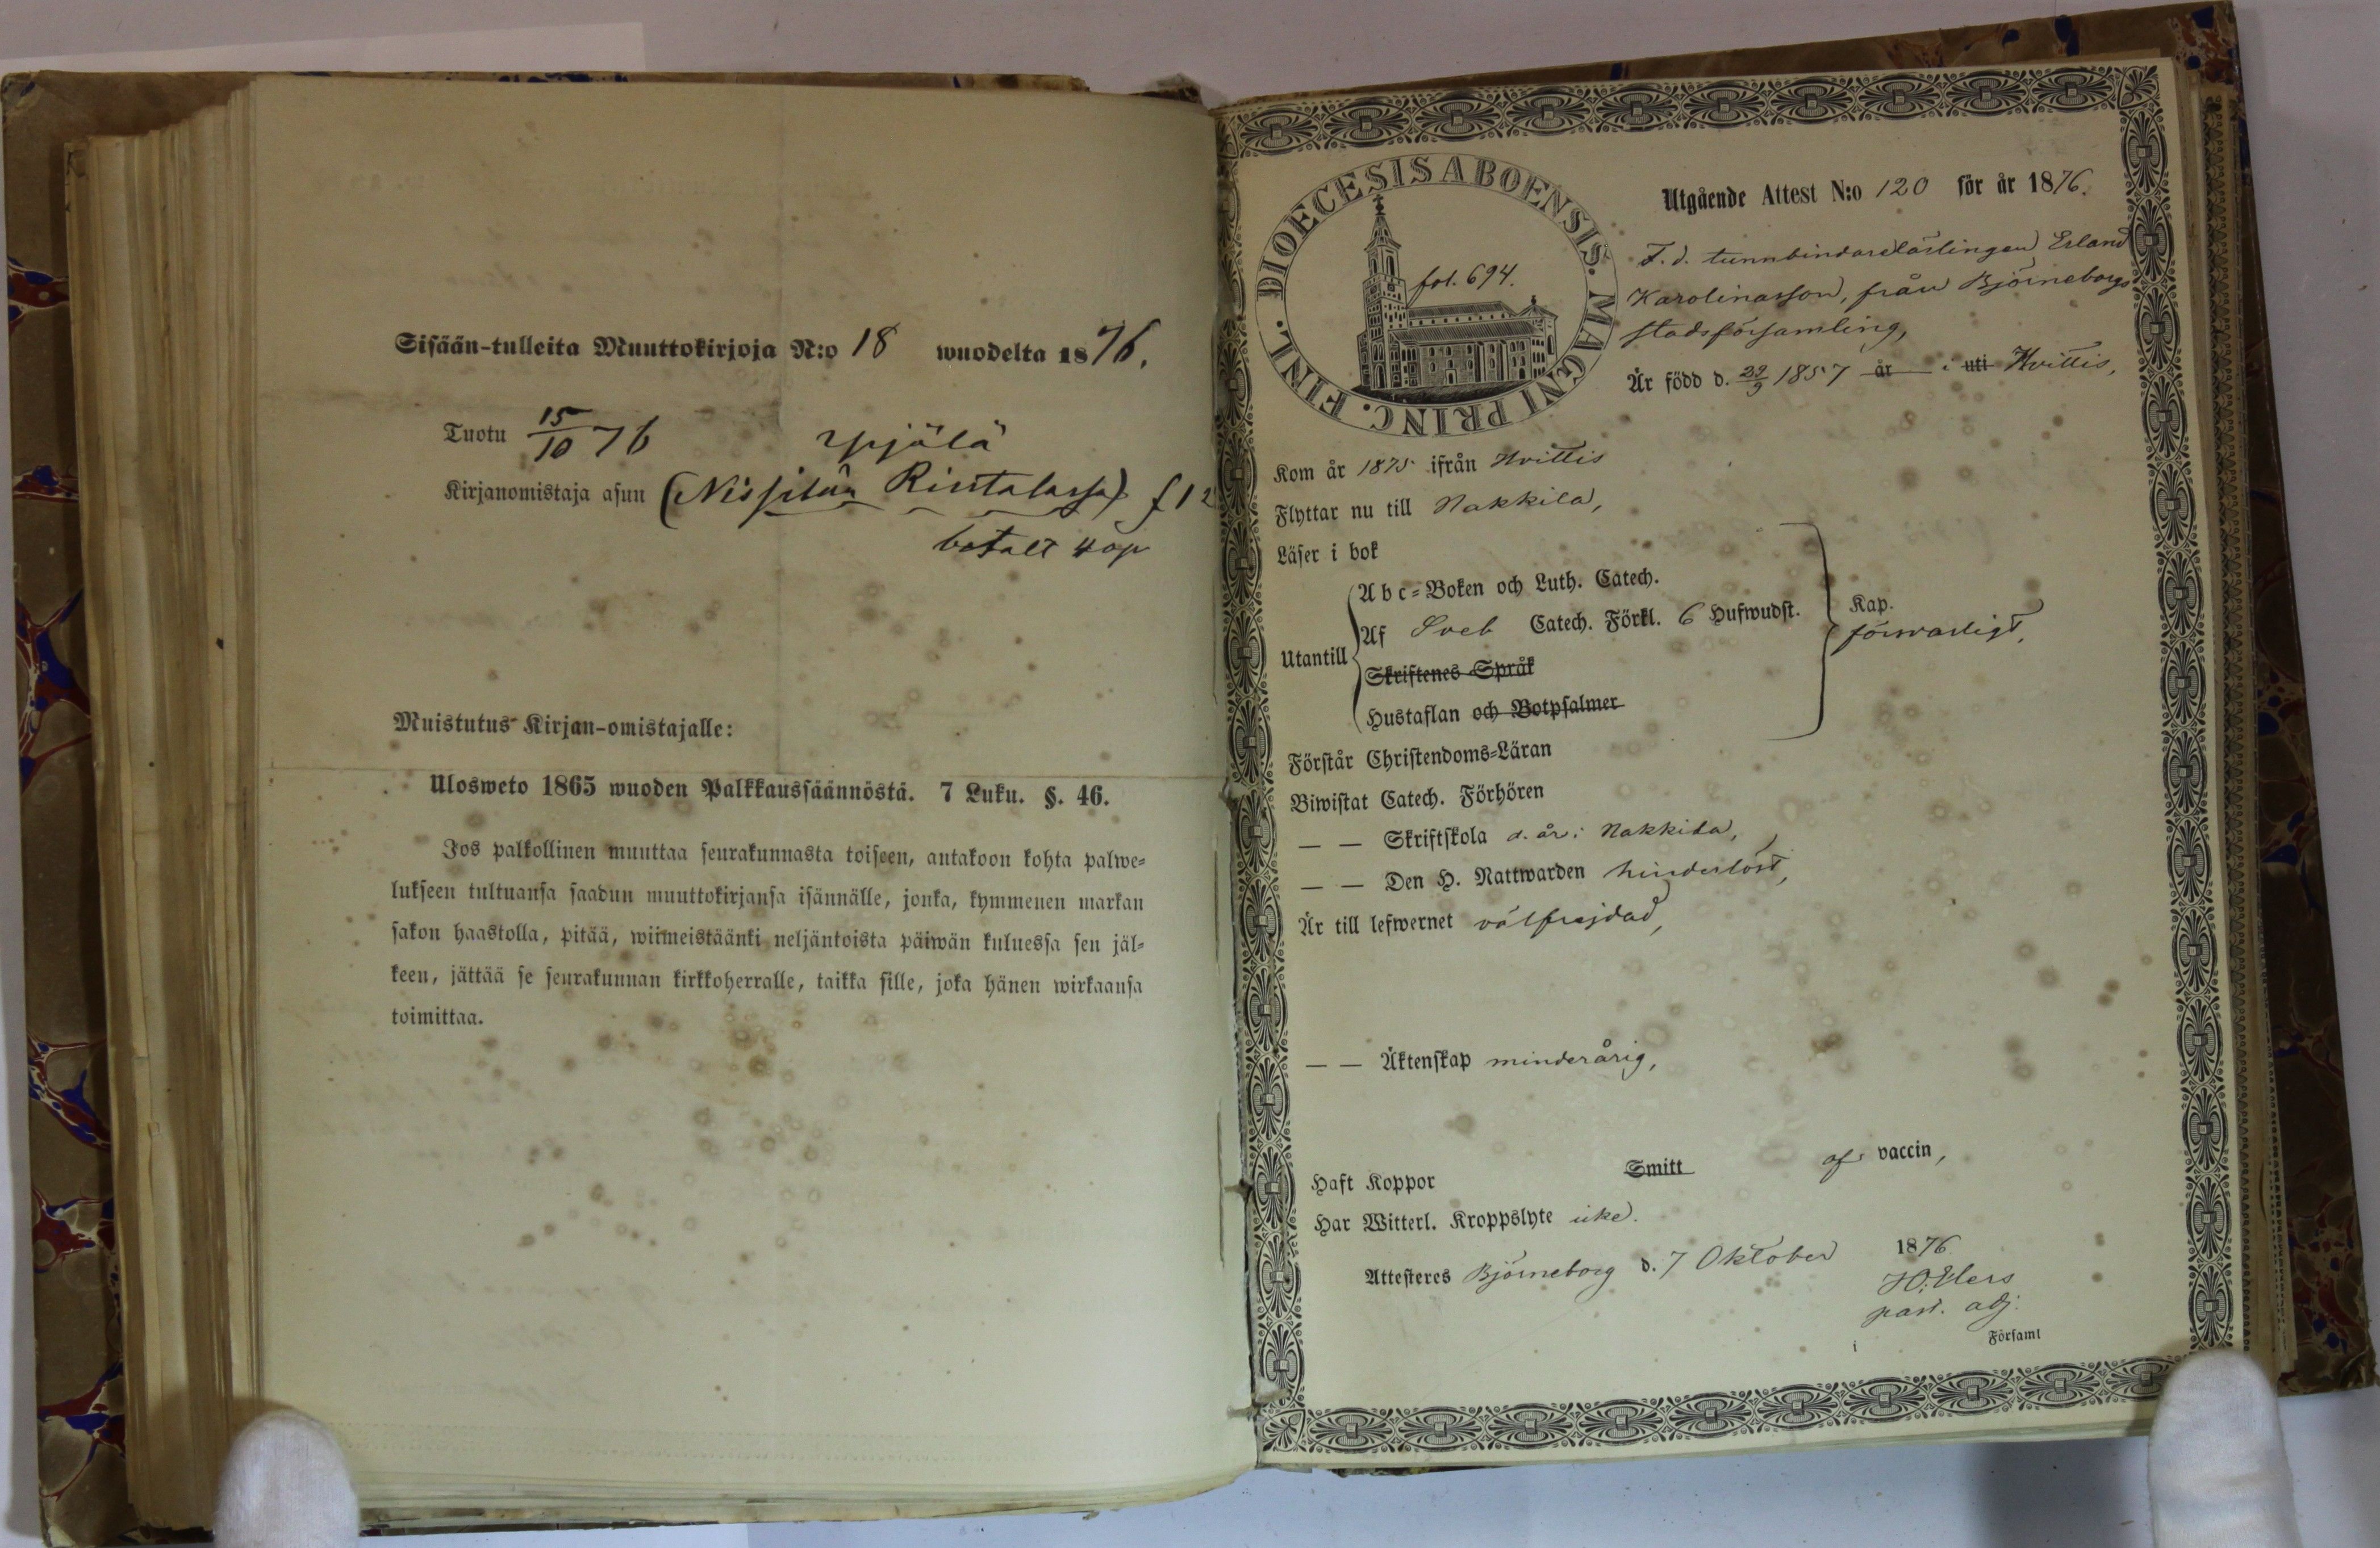 Sisään-tulleita Muuttokirjoja N:o 18 wuodelta 1876.
Tuotu 15/10 76
Kirjanomistaja asuu (Nissilän Rintalassa)
betalt 40p
Muistutus Kirjan-omistajalle:
Ulosweto 1865 wuoden Palkkaussäännöstä. 7 Luku. §. 46.
Jos palkollinen muuttaa seurakunnasta toiseen, antakoon kohta palwe-
lukseen tultuansa saadun muuttokirjansa isännälle, jonka, kymmenen markan
sakon haastolla, pitää, wiimeistäänki neljäntoista päiwän kuluessa sen jäl-
keen, jättää se seurakunnan kirkkoherralle, taikka sille, joka hänen wirkaansa
toimittaa.
DIOECESIS ABOENSIS. MAGNI PRINC. FINL.
fol. 694.
Utgående Attest N:o 120 för år 1876.
F.d. tunnbindarelärlingen Erland
Karolinasson, från Björneborgs
stadsförsamling,
Är född d. 29/9 1857 år i uti Hvittis,
Kom år 1875 ifrån Hvittis
Flyttar nu till Nakkila,
Läser i bok
Utantill
Abc-Boken och Luth. Catech.
Af Sveb Catech. Förkl. 6 Hufwudst.
Skriftenes Språk
Hustaflan och Botpsalmer
Kap.
försvarligt,
Förstår Christendoms-Läran
Biwistat Catech. Förhören
— — Skriftskola d. år i Nakkila,
— — Den H. Nattwarden hinderlöst,
Är till lefwernet välfrejdad,
— — Äktenskap minderårig,
Haft Koppor Smitt af vaccin,
Har Witterl. Kroppslyte icke.
Attesteres Björneborg d. 7 Oktober 1876
past. adj.
i Församl